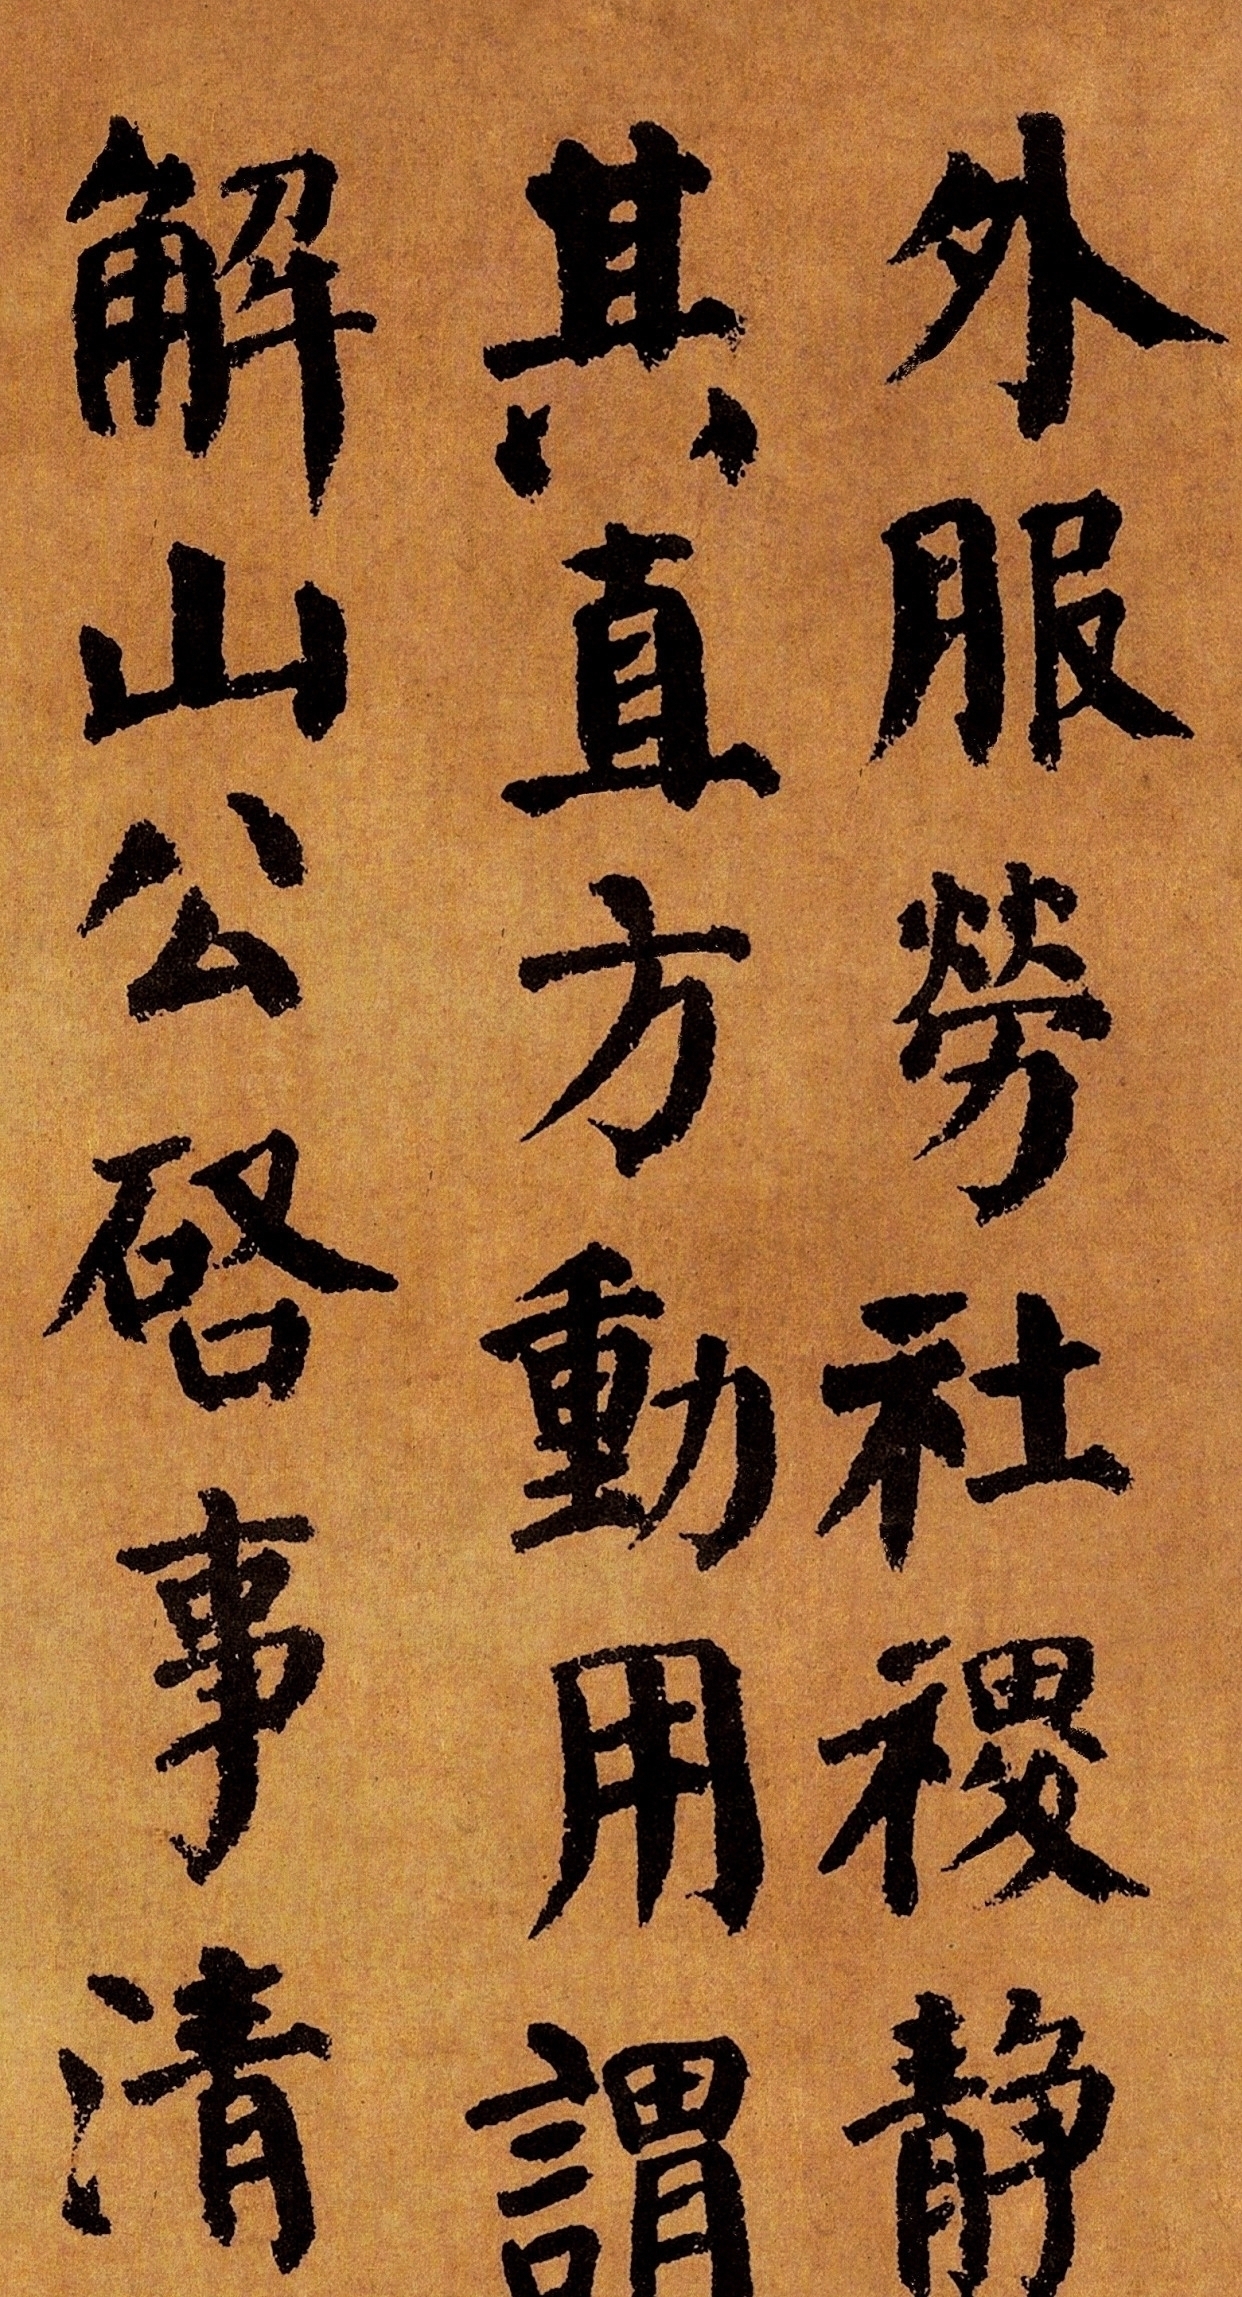 外服勞社稷静
其直方動用謂
解山公啓事清